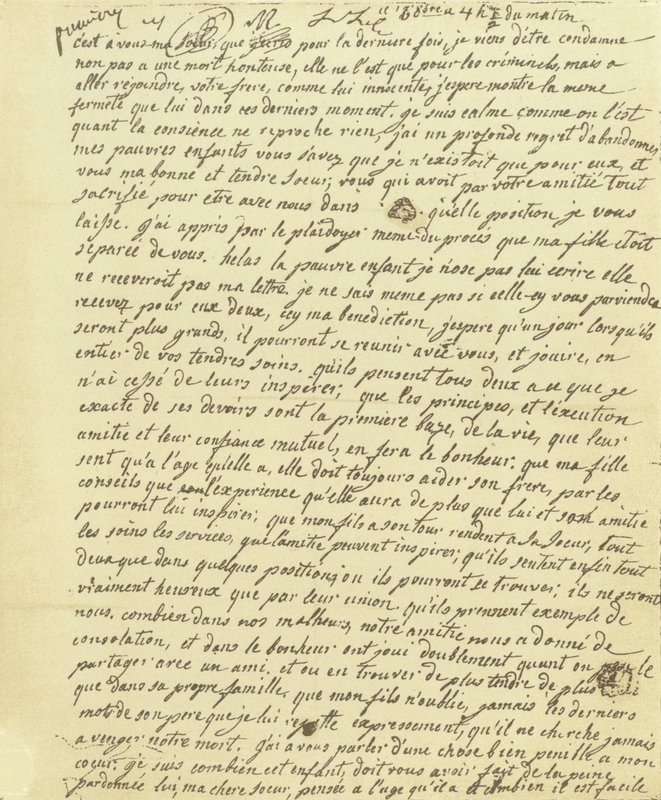 ce 16 8bre a 4 h ½ du matin
c'est à vous ma soeur, que j'ecris pour la derniere fois, je viens d'etre condamne
non pas a une mort honteuse, elle ne l'est que pour les criminels, mais a
aller rejoindre, votre frere, comme lui innocente, j'espere montre la meme
fermeté que lui dans ces derniers moment. je suis calme comme on l'est
quant la conscience ne reproche rien, j'ai un profonde regret d'abandonner
mes pauvres enfants vous savez que je n'existoit que pour eux, et
vous ma bonne et tendre soeur; vous qui avoit par votre amitié tout
sacrifié pour etre avec nous dans quelle position je vous
laisse. j'ai appris par le plaidoyer meme du proces que ma fille etoit
separée de vous. helas la pauvre enfant je n'ose pas lui ecrire elle
ne receveroit pas ma lettre. je ne sais meme pas si celle-cy vous parviendra
recevez pour eux deux, icy ma benediction, j'espere qu'un jour lorsqu'ils
seront plus grands, il pourront se reunir avec vous, et jouire, en
entier de vos tendres soins. qu'ils pensent tous deux a ce que je
n'ai cessé de leurs inspirer; que les principes, et l'exécution
exacte de ses devoirs sont la premiere baze, de la vie, que leur
amitie et leur confiance mutuel, en fera le bonheur. que ma fille
sent qu'a l'age qu'elle a, elle doit toujours aider son frere, par les
conseils que l'experience qu'elle aura de plus que lui et son amitie
pourront lui inspirer; que mon fils a son tour rendent a sa soeur, tout
les soins les services, que l'amitie peuvent inspirer; qu'ils sentent enfin tout
deux que dans quelques positions ou ils pourront se trouver, ils ne seront
vraiment heureux que par leur union qu'ils prennent exemple de
nous. combien dans nos malheurs, notre amitie nous a donné de
consolation, et dans le bonheur ont joui doublement quant on le
partager avec un ami. et ou en trouver de plus tendre de plus
que dans sa propre famille, que mon fils n'oublie, jamais les derniers
mots de son pere que je lui repette expressement, qu'il ne cherche jamais
a venger notre mort. j'ai a vous parler d'une chose bien penille a mon
coeur. je sais combien cet enfant, doit vous avoir fait de la peine
pardonnée lui, ma chere soeur, pensée a l'age qu'il a et combien il est facile